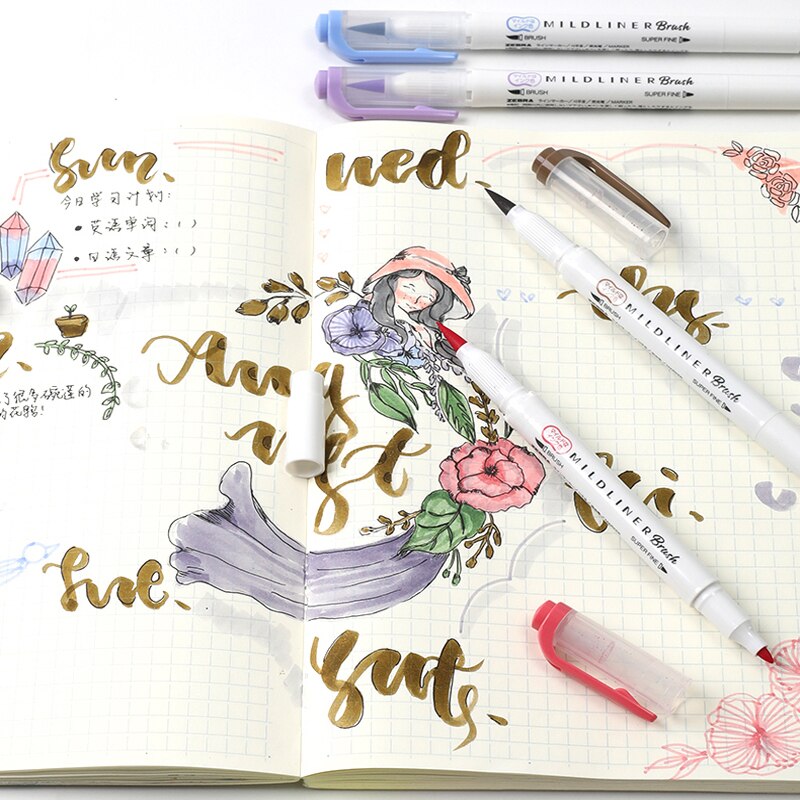 MILDLINER Brush
BRUSH
SUPER FINE
ZEBRA
MILDLINER Brush
BRUSH
SUPER FINE
ZEBRA
sun.
wed.
今日学习计划:
• 英语单词:( )
• 日语文章:( )
了很多碗莲的
August
fri.
tue.
sat.
MILDLINER Brush
BRUSH
SUPER FINE
MILDLINER Brush
BRUSH
SUPER FINE